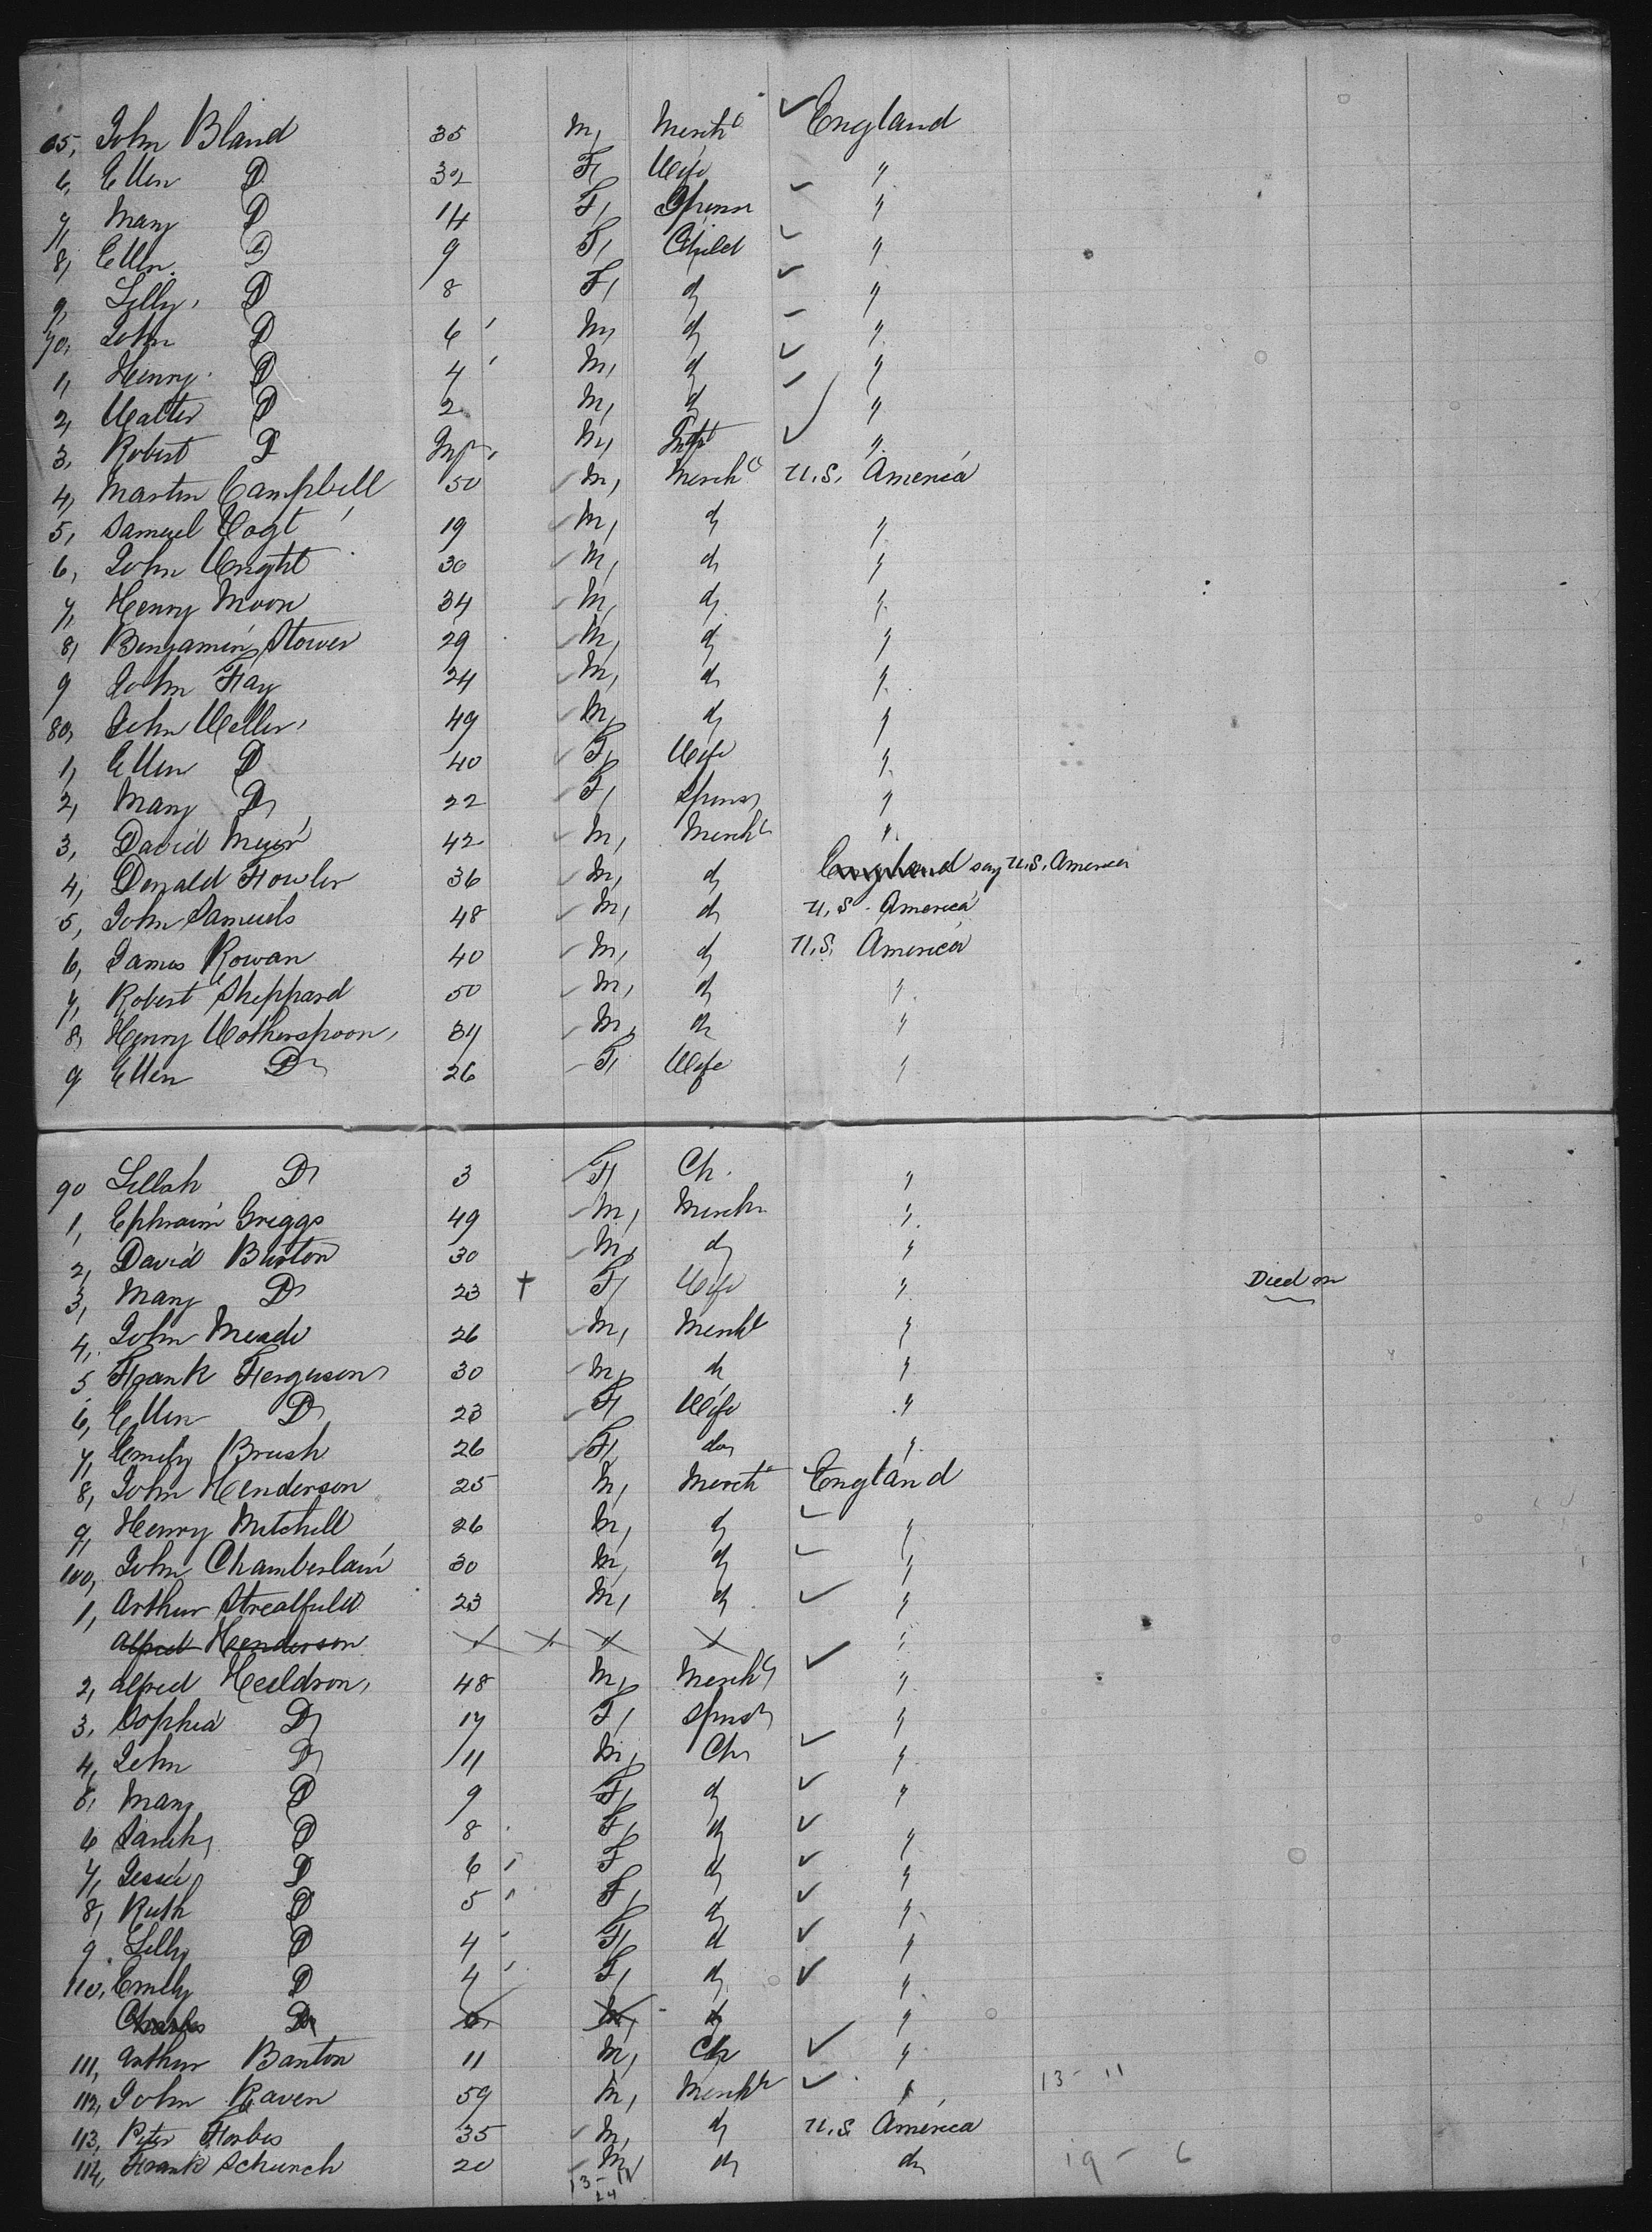 65, John Bland 35 M, Mercht England
6, Ellen D 32 F, Wife "
7, Mary D 14 F, Spinsr "
8, Ellen D 9 F, Child "
9, Lilly D 8 F, d "
70, John D 6 M, d "
1, Henry D 4 M, d "
2, Walter D 2 M, d "
3, Robert D Inft, M, Inft "
4, Martin Campbell 50 M, Mercht U.S. America
5, Samuel Vogt 19 M, d "
6, John Wright 30 M, d "
7, Henry Moon 34 M, d "
8, Benjamin Stower 29 M, d "
9 John Fay 24 M, d "
80, John Weller 49 M, d "
1, Ellen D 40 F, Wife "
2, Mary D 22 F, Spinsr "
3, David Meyer 42 M, Mercht "
4, Donald Fowler 36 M, d England say U.S. America
5, John Samuels 48 M, d U.S. America
6, James Rowan 40 M, d U.S. America
7, Robert Sheppard 50 M, d "
8, Henry Wotherspoon, 34 M, d "
9 Ellen D 26 F, Wife "
90 Lillah D 3 F, Ch. "
1, Ephraim Griggs 49 M, Mercht "
2, David Burton 30 M, d "
3, Mary D 23 † F, Wife " Died on
4, John Meade 26 M, Mercht "
5 Frank Ferguson 30 M, d "
6, Ellen D 23 F, Wife "
7, Emily Brush 26 F, do "
8, John Henderson 25 M, Mercht England
9, Henry Mitchell 26 M, d "
100, John Chamberlain 30 M, d "
1, Arthur Streatfeild 23 M, d "
Alfred Henderson x x x x "
2, Alfred Heeldron, 48 M, Mercht "
3, Sophia D 17 F, Spinsr "
4, John D 11 M, Ch "
5, Mary D 9 F, d "
6 Sarah, D 8 F, d "
7, Jessie, D 6 F d "
8, Ruth D 5 F, d "
9 Lilly D 4 F, d "
110, Emily D 4 F, d "
Charles D "
111, Arthur Banton 11 M, Ch "
112, John Raven 59 M, Mercht " 13 - 11
113, Peter Forbes 35 M, d U.S. America
114, Frank Schunch 20 M, d do 19 - 6
13 - 11
24